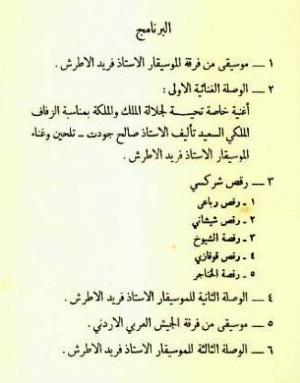 البرنامج
١ — موسيقى من فرقة الموسيقار الاستاذ فريد الاطرش .
٢ — الوصلة الغنائية الاولى :
أغنية خاصة تحيـة لجلالة الملك والملكة بمناسبة الزفاف
الملكي السعيد تأليف الاستاذ صالح جودت ــ تلحين وغناء
الموسيقار الاستاذ فريد الاطرش .
٣ — رقص شركسي
١ ـ رقص رباعى
٢ ـ رقص شيشاني
٣ ـ رقصة الشيوخ
٤ ـ رقص قوقازي
٥ ـ رقصة الخناجر
٤ — الوصلة الثانية للموسيقار الاستاذ فريد الاطرش .
٥ — موسيقى من فرقة الجيش العربي الاردني .
٦ — الوصلة الثالثة للموسيقار الاستاذ فريد الاطرش .